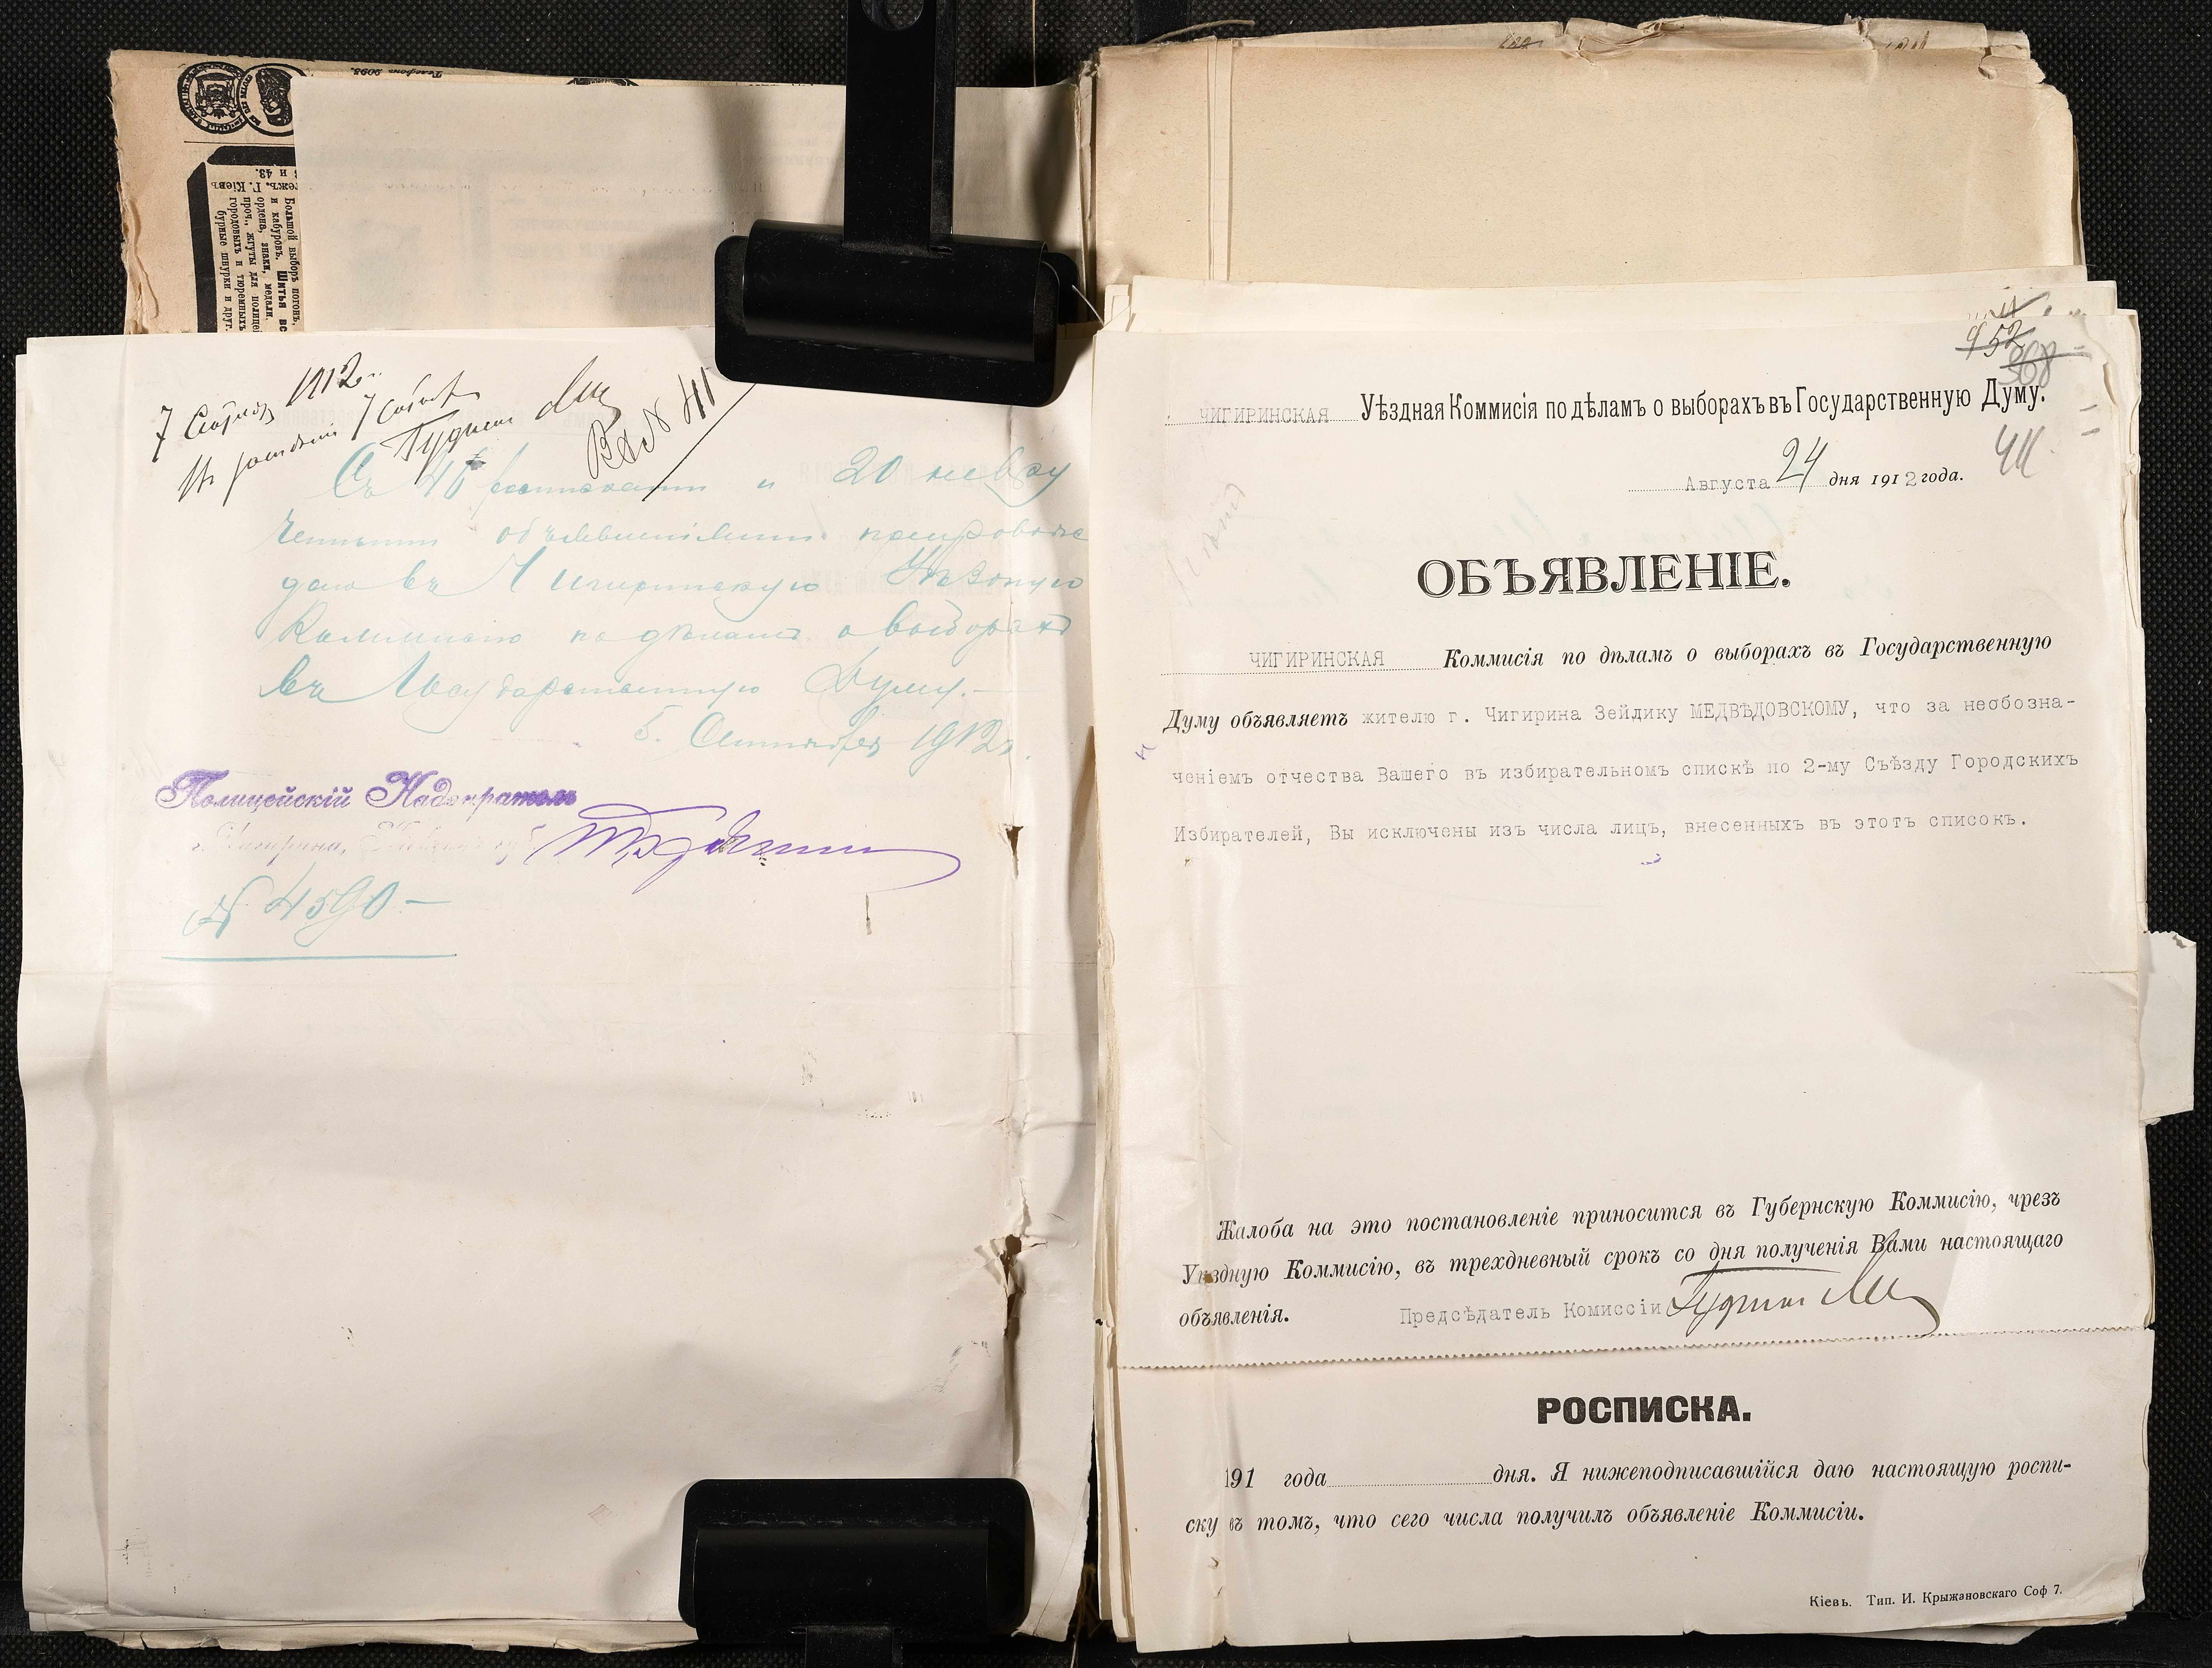 Телефонъ 2095.
Большой выборъ погонъ,
и кабуровъ. Шитья вс
ордена, знаки, медали.
проч., жгуты для полице
городовыхъ и тюремныхъ
бурные шнурки и друг.
г. Кіевъ
и 43.
7 1912 г.
7
Вх № 411
Съ 46 росписками и 20 невру
ченными объявленіями препровож
даю въ Чигиринскую Уѣздную
Коммисію по дѣламъ о выборахъ
въ Государственную Думу.—
5. Сентября 1912 г.
Полицейскій Надзиратель
г. Чигирина, Кіевск. губ.
№ 4590—
452
368
ЧИГИРИНСКАЯ Уѣздная Коммисія по дѣламъ о выборахъ въ Государственную Думу.
Августа 24 дня 1912 года.
ОБЪЯВЛЕНІЕ.
ЧИГИРИНСКАЯ Коммисія по дѣламъ о выборахъ въ Государственную
Думу объявляетъ жителю г. Чигирина Зейдику МЕДВѢДОВСКОМУ, что за необозна-
ченіемъ отчества Вашего въ избирательномъ спискѣ по 2-му Съѣзду Городскихъ
Избирателей, Вы исключены изъ числа лицъ, внесенныхъ въ этотъ списокъ.
Жалоба на это постановленіе приносится въ Губернскую Коммисію, чрезъ
Уѣздную Коммисію, въ трехдневный срокъ со дня полученія Вами настоящаго
объявленія. Предсѣдатель Комиссіи
РОСПИСКА.
191 года дня. Я нижеподписавшійся даю настоящую роспи-
ску въ томъ, что сего числа получилъ объявленіе Коммисіи.
Кіевъ. Тип. И. Крыжановскаго Соф 7.